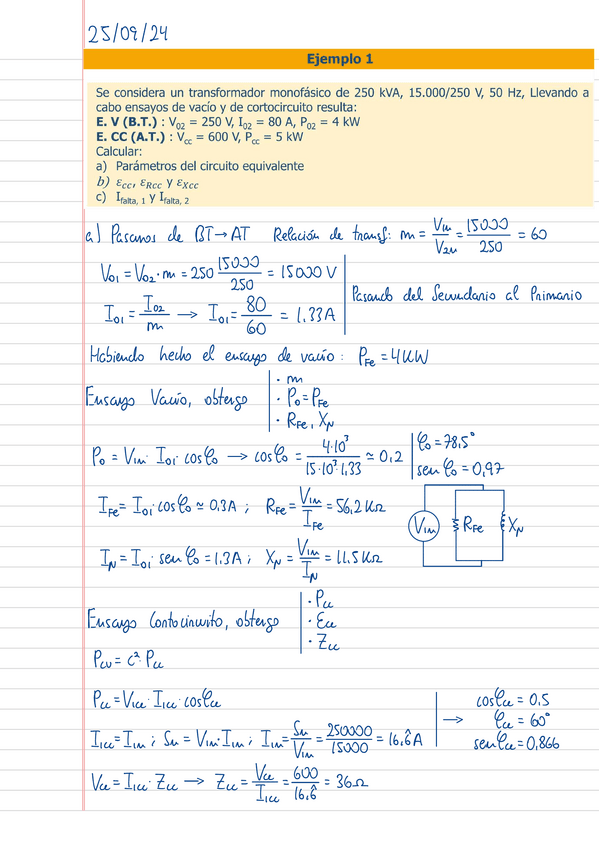 25/09/24
Ejemplo 1
Se considera un transformador monofásico de 250 kVA, 15.000/250 V, 50 Hz, Llevando a
cabo ensayos de vacío y de cortocircuito resulta:
E. V (B.T.) : V₀₂ = 250 V, I₀₂ = 80 A, P₀₂ = 4 kW
E. CC (A.T.) : Vcc = 600 V, Pcc = 5 kW
Calcular:
a) Parámetros del circuito equivalente
b) εcc, εRcc y εXcc
c) Ifalta, 1 y Ifalta, 2
a) Pasamos de BT → AT Relación de transf: m = V1n/V2n = 15000/250 = 60
V01 = V02 · m = 250 15000/250 = 15000 V
Pasando del Secundario al Primario
I01 = I02/m → I01 = 80/60 = 1.33 A
Habiendo hecho el ensayo de vacío : PFe = 4 KW
Ensayo Vacío, obtengo
· m
· P0 = PFe
· RFe, XN
P0 = V1n · I01 · cosφ0 → cosφ0 = 4·10³/15·10³·1,33 ≃ 0,2
φ0 = 78,5°
sen φ0 = 0,97
IFe = I01 · cosφ0 ≃ 0,3A ; RFe = V1n/IFe = 56,2 KΩ
V1n RFe XN
IN = I01 · sen φ0 = 1.3A ; XN = V1n/IN = 11,5 KΩ
Ensayo Cortocircuito, obtengo
· Pcc
· Ecc
· Zcc
Pcu = c² · Pcc
Pcc = V1cc · I1cc · cosφcc
cosφcc = 0.5
φcc = 60°
senφcc = 0,866
I1cc = I1n ; Sn = V1n · I1n ; I1n = Sn/V1n = 250000/15000 = 16,6̂ A →
Vcc = I1cc · Zcc → Zcc = Vcc/I1cc = 600/16,6̂ = 36 Ω